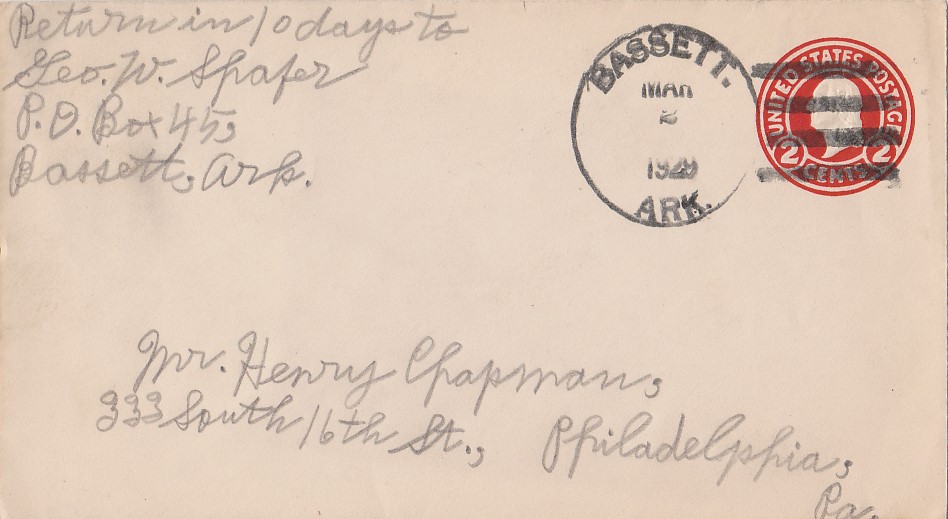 Return in 10 days to
Geo. W. Shafer
P.O. Box 45,
Bassett, Ark.
BASSETT.
MAR
2
1929
ARK.
UNITED STATES POSTAGE
2 2
CENTS
Mr. Henry Chapman,
333 South 16th St., Philadelphia,
Pa.